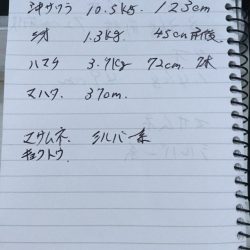 沖サワラ 10.5kg. 123cm
1.3kg 45cm前後
ハマチ 3.9kg 72cm. 2本
マハタ 37cm.
ユウムネ. シルバー系
キョクトウ.